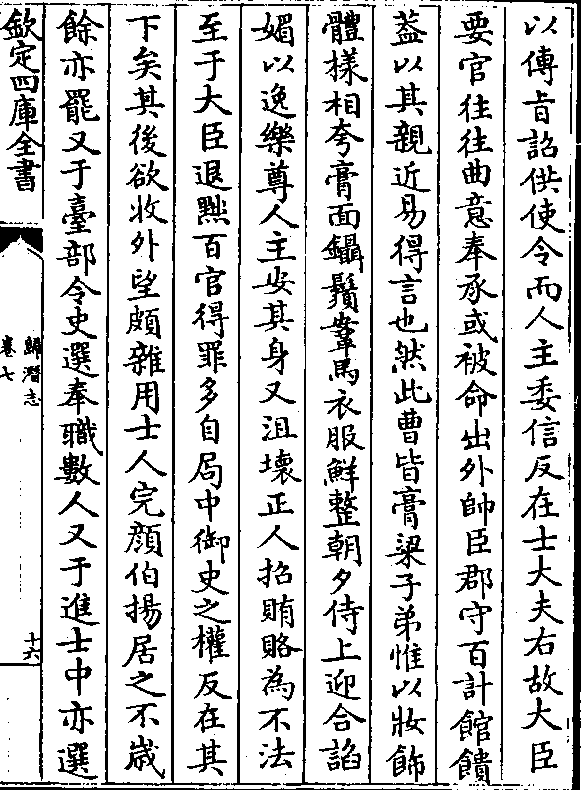 以傳㫖詔供使令而人主委信反在士大夫右故大臣
要官往往曲意奉承或被命出外帥臣郡守百計館饋
葢以其親近易得言也然此曹皆膏粱子弟惟以妝飾
體樣相夸膏面鑷鬚鞍馬衣服鮮整朝夕侍上迎合諂
媚以逸樂尊人主安其身又沮壊正人招賄賂為不法
至于大臣退黜百官得罪多自局中御史之權反在其
下矣其後欲收外望頗雜用士人完顔伯揚居之不歳
餘亦罷又于臺部令史選奉職數人又于進士中亦選
欽定四庫全書
歸潛志
卷七
十六